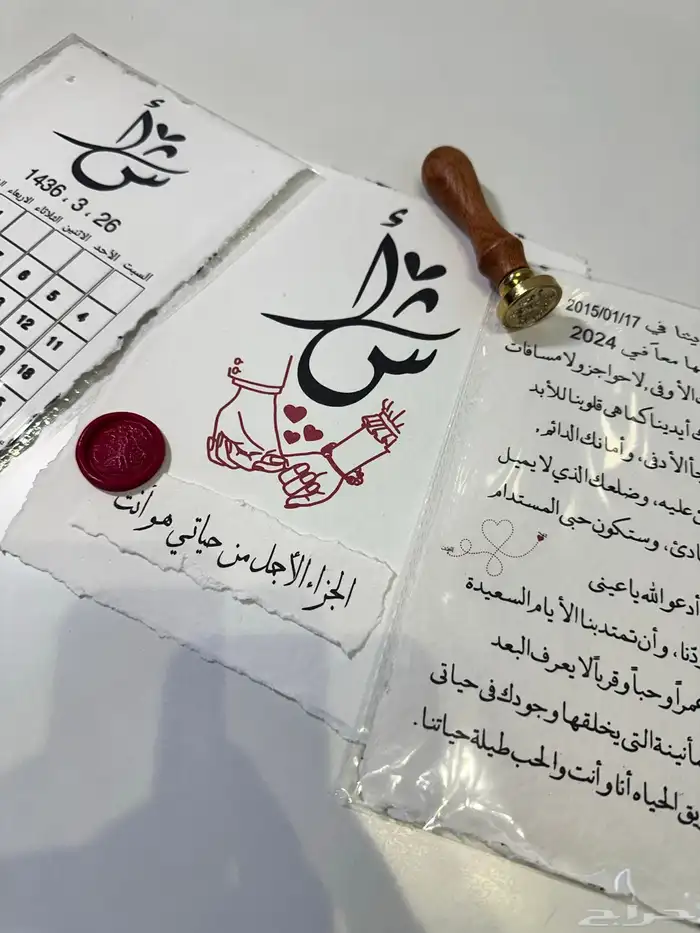 أ ش
1436 ، 3 ، 26
السبت الأحد الاثنين الثلاثاء الاربعاء
4
5 6 7
11 12
18
أ ش
الجزاء الأجل من حياتي هو أنت
في 2015/01/17
معاً في 2024
الأوفى، لا حواجز ولا مسافات
أيدينا كما هي قلوبنا للأبد
الأدفى، وأمانك الدائم،
عليه، وضلعك الذي لا يميل
وستكون حبي المستدام
أدعو الله يا عيني
وأن تمتد بنا الأيام السعيدة
وحباً وقرباً لا يعرف البعد
التي يخلقها وجودك في حياتي
الحياه أنا وأنت والحب طيلة حياتنا.
حراج